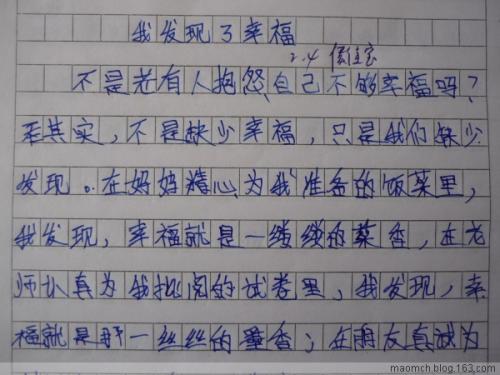 我发现了幸福
2.4 
不是老有人抱怨自己不够幸福吗？
若其实，不是缺少幸福，只是我们缺少
发现。在妈妈精心为我准备的饭菜里，
我发现，幸福就是一缕缕的菜香，在老
师认真为我批阅的试卷里，我发现，幸
福就是那一丝丝的墨香；在朋友真诚为
maomch.blog.163.com